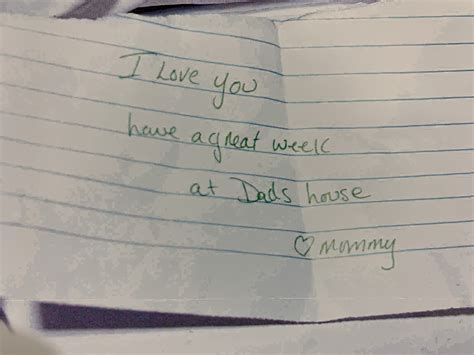 I Love you
have a great week
at Dads house
♡ mommy